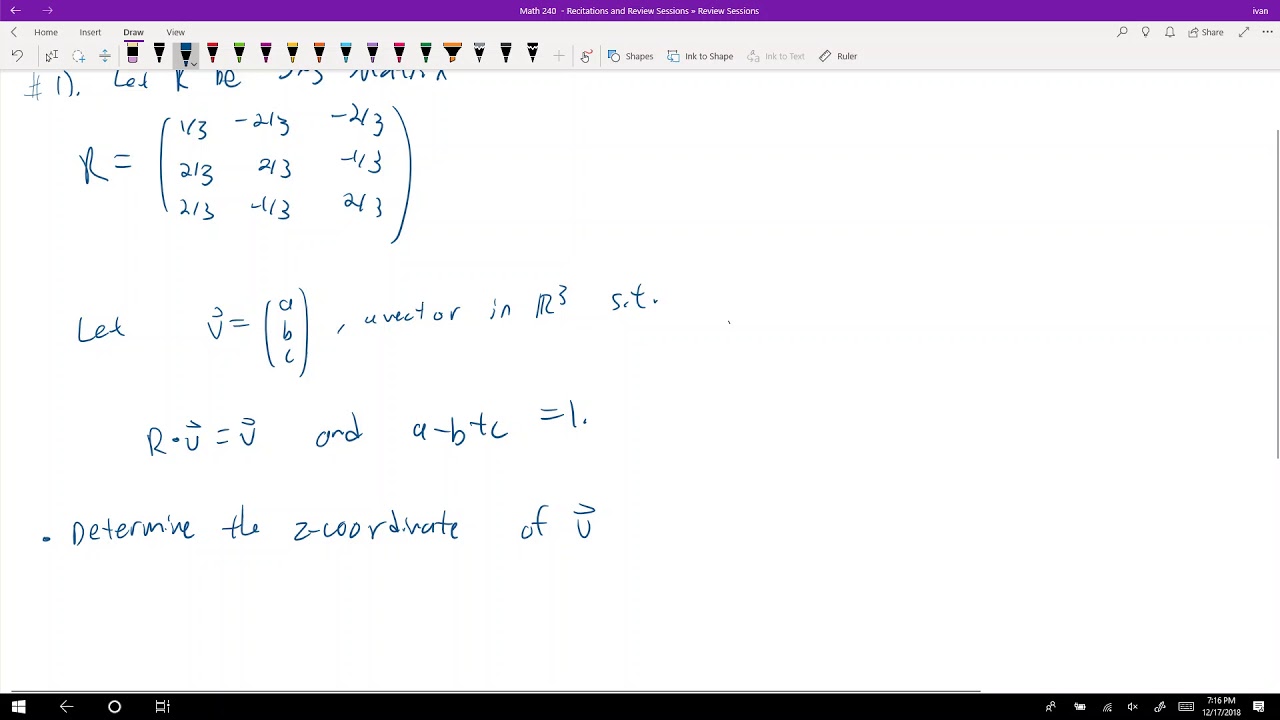 Math 240 - Recitations and Review Sessions » Review Sessions
ivan
Home Insert Draw View
Share
Shapes Ink to Shape Ink to Text Ruler
#1). Let R be 3x3 Matrix
R = ( 1/3 -2/3 -2/3
2/3 2/3 -1/3
2/3 -1/3 2/3 )
Let v⃗ = ( a b c ) , a vector in ℝ³ s.t.
R·v⃗ = v⃗ and a-b+c = 1.
• Determine the z-coordinate of v⃗
7:16 PM
12/17/2018